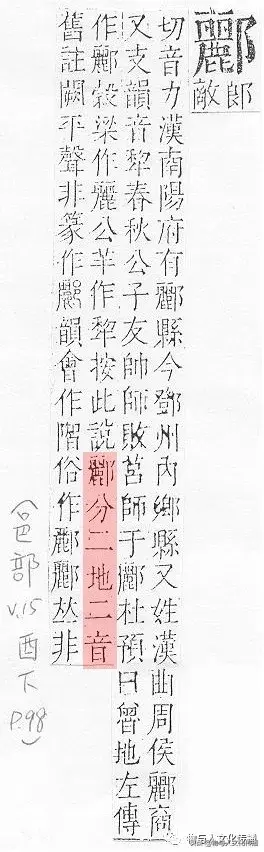 酈
郎敵
切音力漢南陽府有酈縣今鄧州內鄉縣又姓漢曲周侯酈商
又支韻音犂春秋公子友帥師敗莒師于酈杜預曰魯地左傳
作酈穀梁作麗公羊作犂按此說酈分二地二音
舊註闕平聲非篆作酈韻會作階俗作酈酈𠀤非
(邑部
V.15 酉下
P.98)